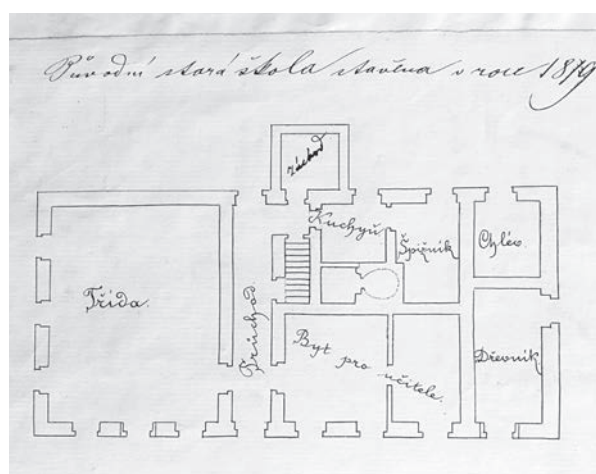 Původní stará škola stavěna v roce 1879
záchod
Kuchyň
Špižník
Chlév.
Třída.
Průchod.
Byt pro učitele.
Dřevník